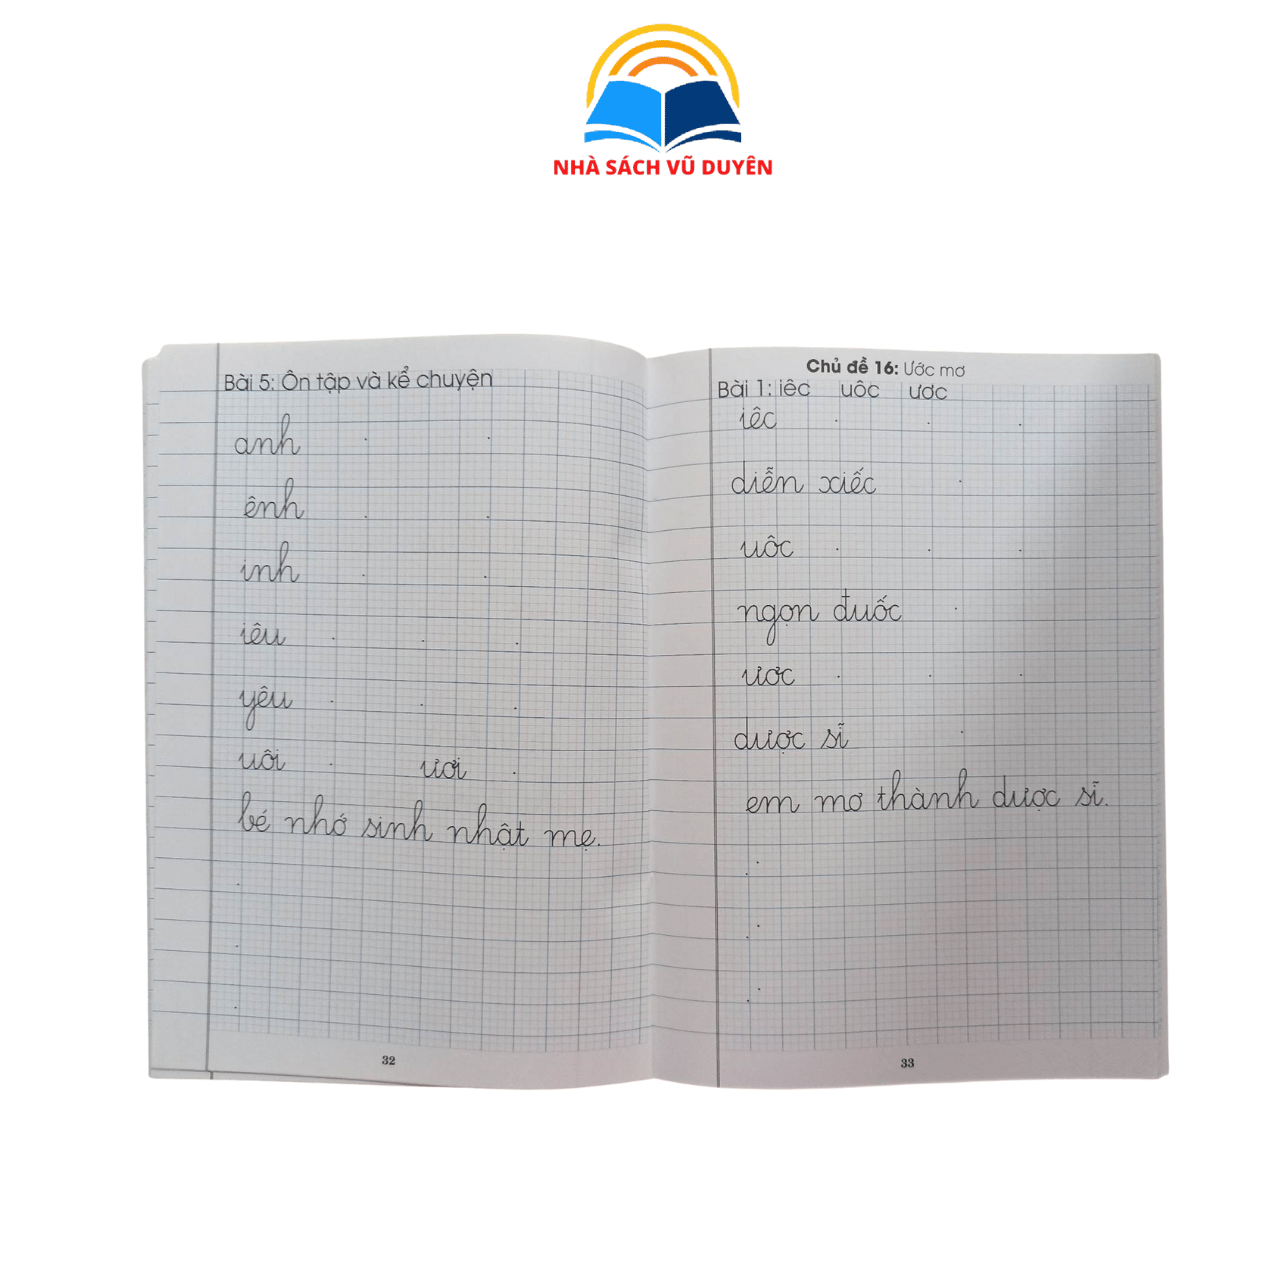 NHÀ SÁCH VŨ DUYÊN
Bài 5: Ôn tập và kể chuyện
anh
ênh
inh
iêu
yêu
uôi ươi
bé nhớ sinh nhật mẹ.
32
Chủ đề 16: Ước mơ
Bài 1: iêc uôc ươc
iêc
diễn xiếc
uôc
ngọn đuốc
ươc
dược sĩ
em mơ thành dược sĩ.
33